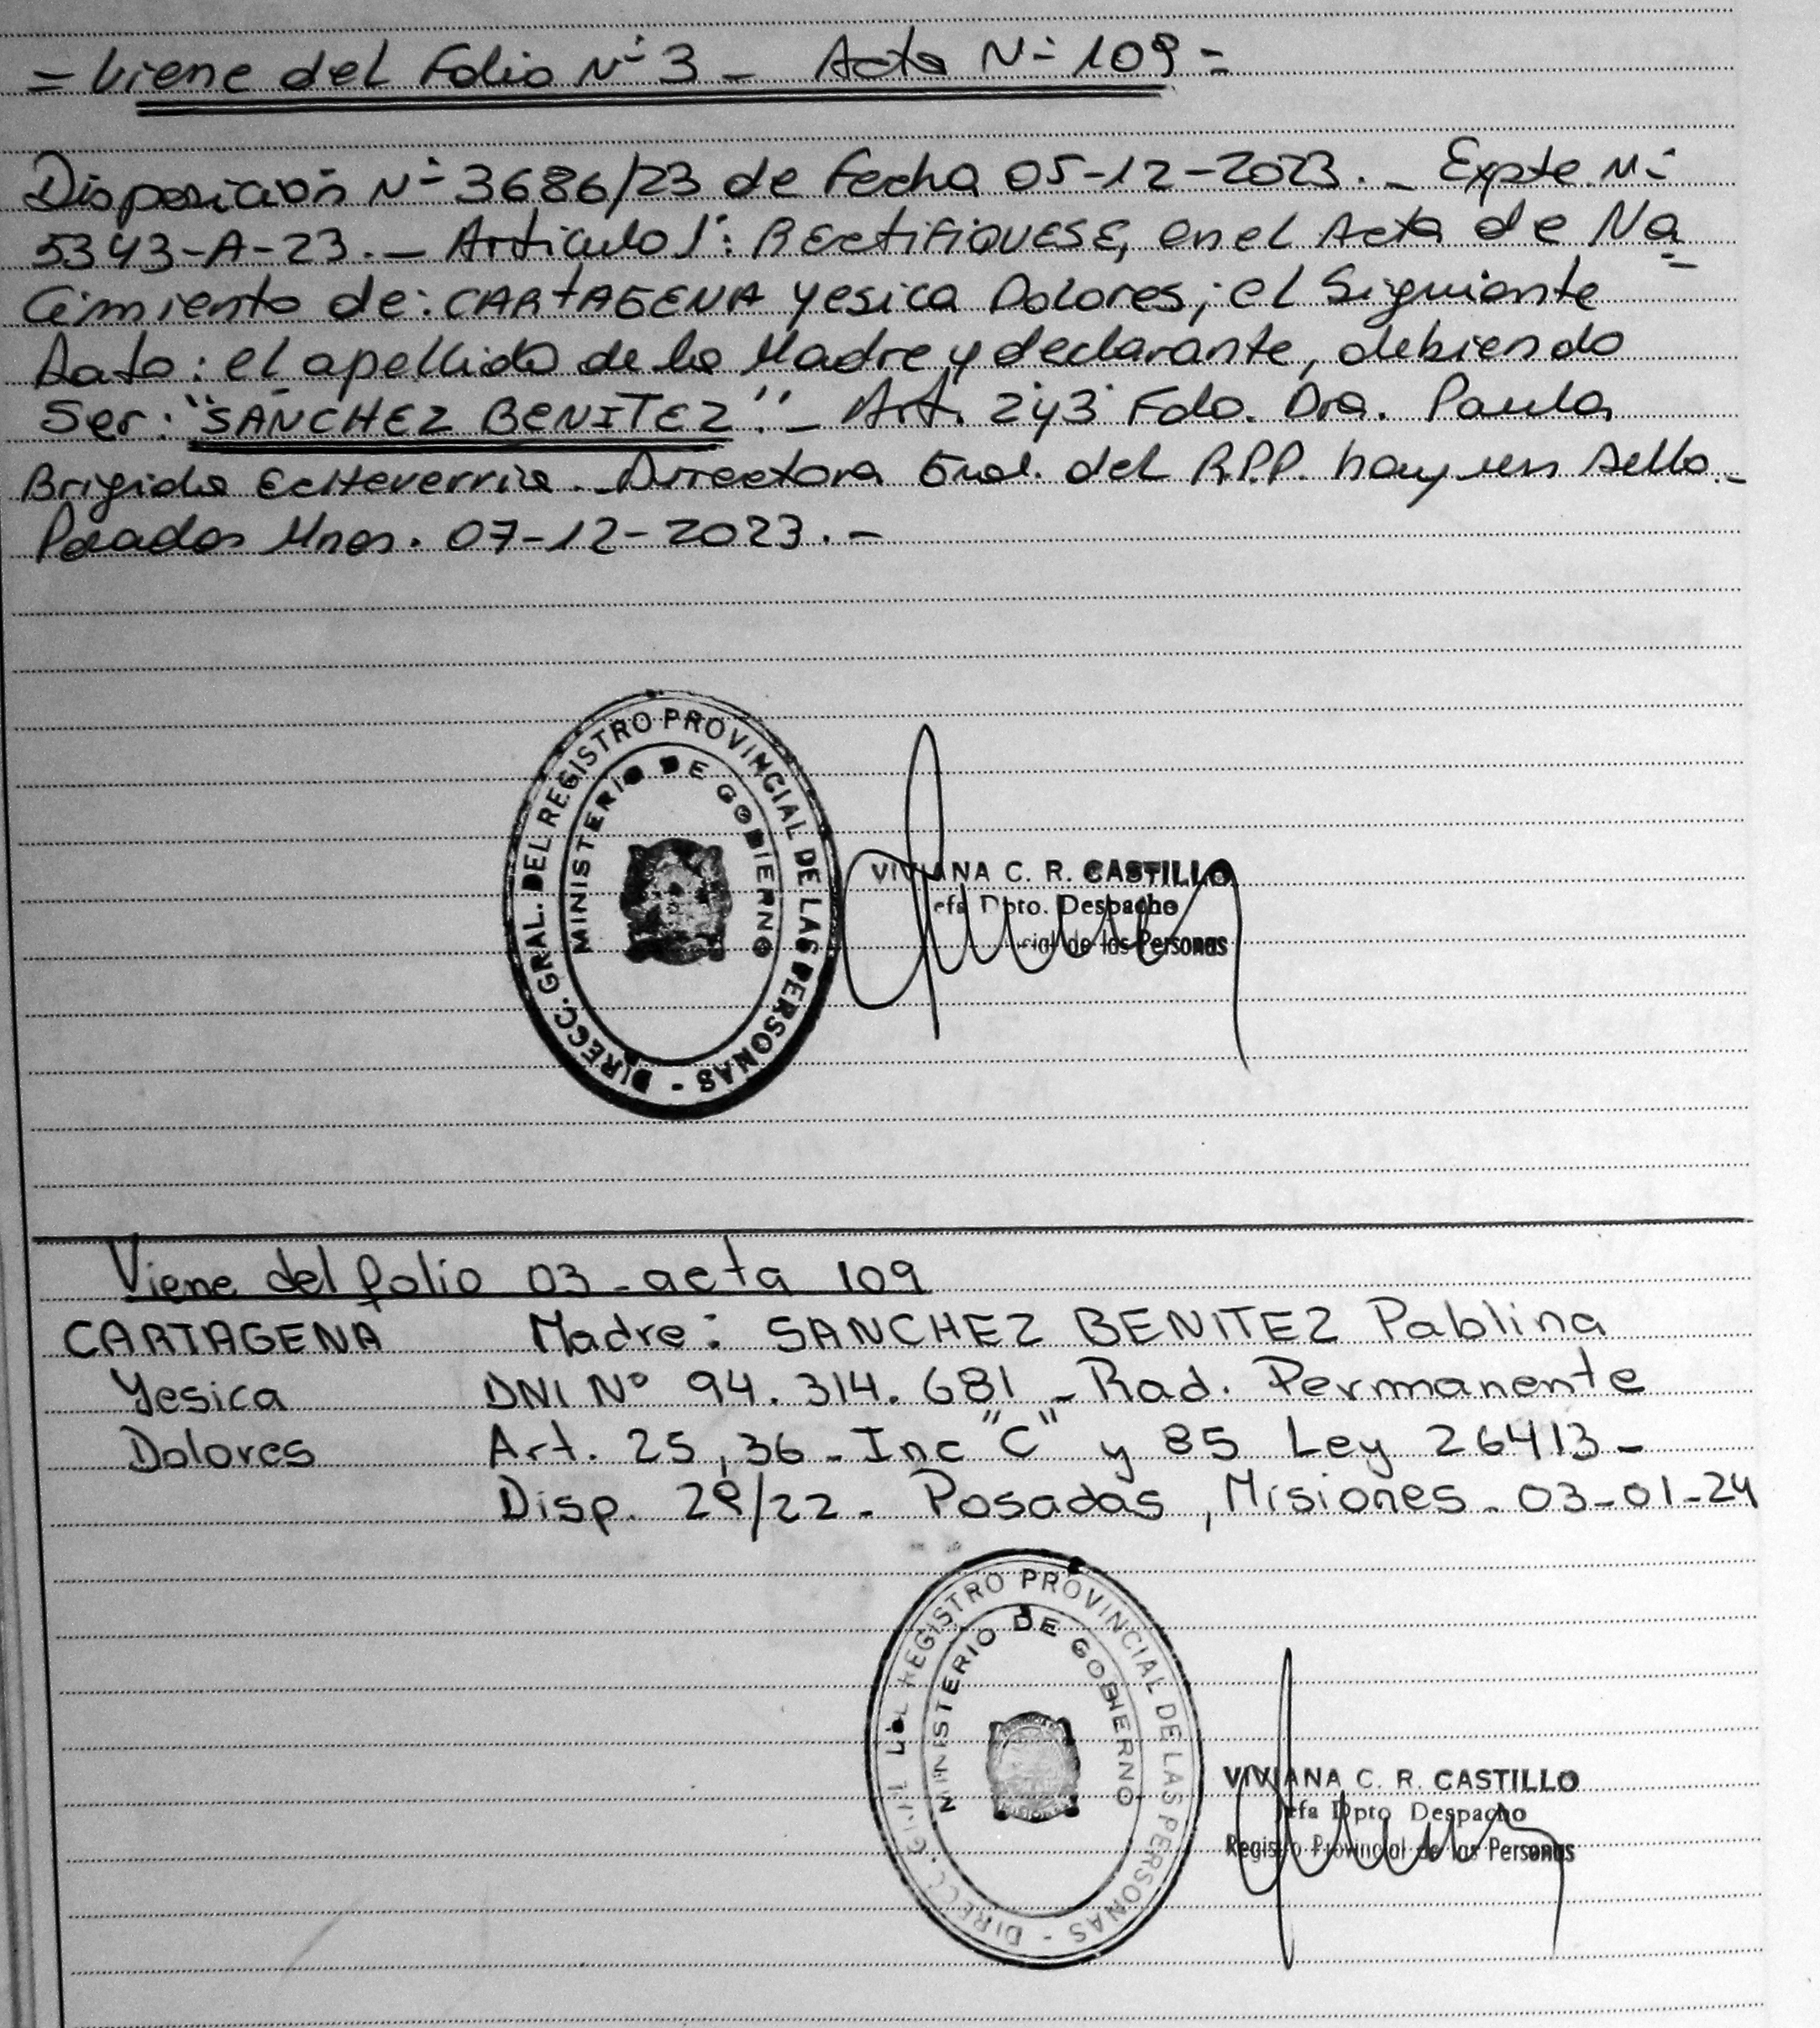 = Viene del Folio Nº 3 - Acta Nº 109 =
Disposición Nº 3686/23 de Fecha 05-12-2023. - Expte. Nº
5343-A-23. - Artículo 1º: RECTIFIQUESE, en el Acta de Na
cimiento de: CARTAGENA Yesica Dolores; el Siguiente
Dato: el apellido de la Madre y declarante, debiendo
Ser: "SÁNCHEZ BENITEZ". - Art. 2 y 3 Fdo. Dra. Paula
Brigida Echeverria. - Directora Gral. del R.P.P. hay un Sello. -
Posadas Mnes. 07-12-2023. -
DIRECC. GRAL. DEL REGISTRO PROVINCIAL DE LAS PERSONAS -
MINISTERIO DE GOBIERNO
VIVIANA C. R. CASTILLO
efa Dpto. Despacho
cial de las Personas
Viene del folio 03 - acta 109
CARTAGENA Madre: SANCHEZ BENITEZ Pablina
Yesica DNI Nº 94.314.681 - Rad. Permanente
Dolores Art. 25, 36 - Inc "C" y 85 Ley 26413 -
Disp. 29/22 - Posadas, Misiones - 03-01-24
REGISTRO PROVINCIAL DE LAS PERSONAS - DIRECC.
MINISTERIO DE GOBIERNO
VIVIANA C. R. CASTILLO
Jefa Dpto Despacho
Registro Provincial de las Personas